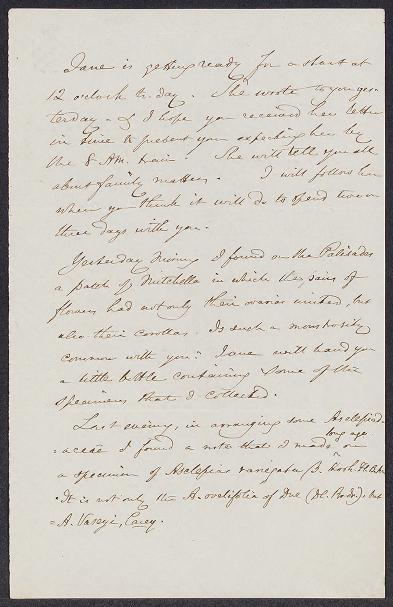 Jane is getting ready for a start at
12 o'clock to-day. She wrote to you yes-
terday - & I hope you received her letter
in time to prevent your expecting her by
the 8 AM. train. She will tell you all
about family matters. I will follow her
when you think it will do to spend two or
three days with you.
Yesterday morning I found on the Palisades
a patch of Mitchella in which the pairs of
flowers had not only their ovaries united, but
also their corollas. Is such a monstrosity
common with you? Jane will hand you
a little bottle containing some of the
specimens that I collected.
Last evening, in arranging some Asclepiad-
aceae I found a note that I made long ago on
a specimen of Asclepias variegata β. Hook. Fl.
It is not only the A. ovalifolia of Dne (DC. Prodr.), but
= A. Vaseyi, Carey.